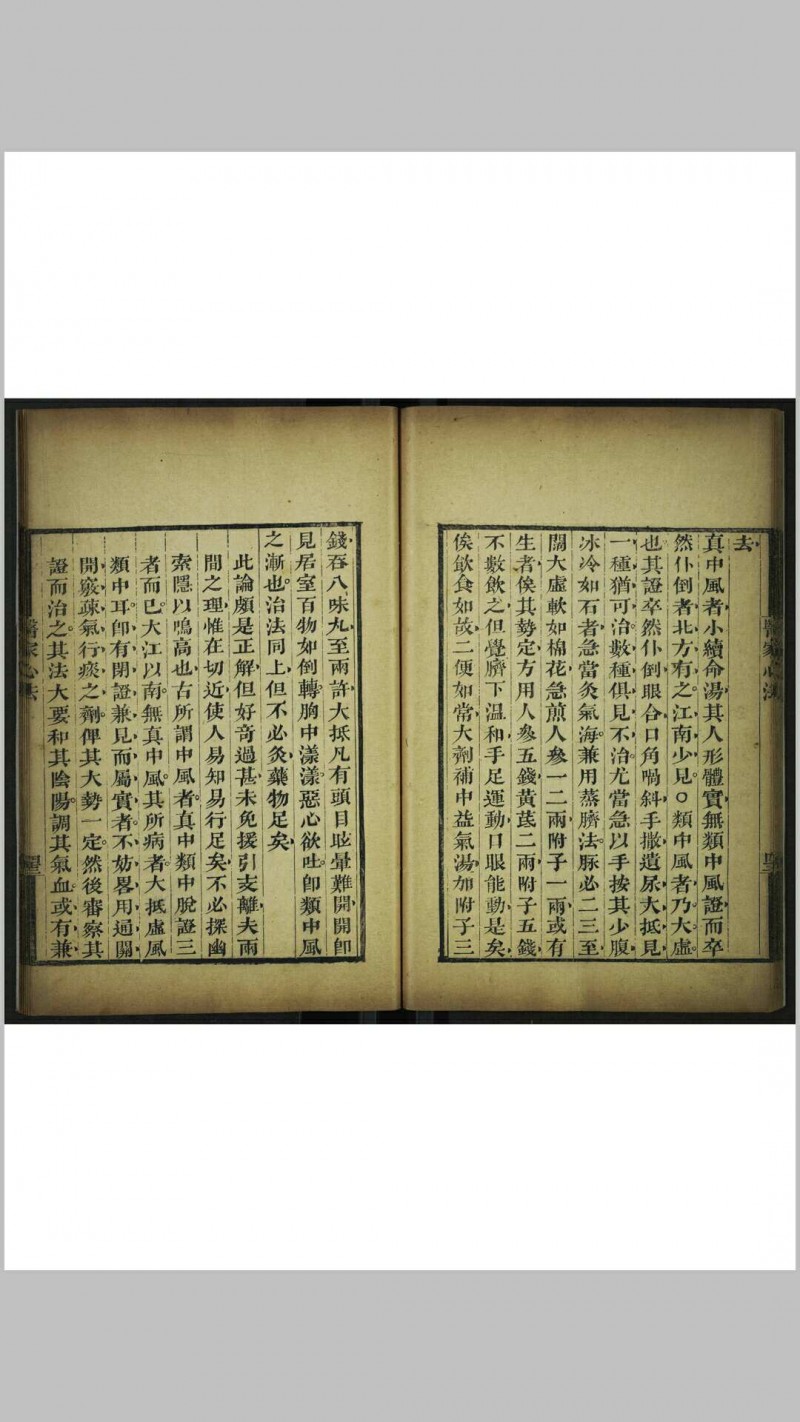 去
真中風者小續命湯其人形體實無類中風證而卒
然仆倒者北方有之江南少見○類中風者乃大虛
也其證卒然仆倒眼合口角喎斜手撒遺尿大抵見
一種猶可治數種俱見不治尤當急以手按其少腹
冰冷如石者急當灸氣海兼用蒸臍法脉必二三至
闊大虛軟如棉花急煎人參一二兩附子一兩或有
生者俟其勢定方用人參五錢黃茋二兩附子五錢
不數飲之但覺臍下温和手足運動口眼能動是矣
俟飲食如故二便如常大劑補中益氣湯加附子三
醫家心法
錢吞八味丸至兩許大抵凡有頭目眩暈難開開卽
見居室百物如倒轉胸中漾漾惡心欲吐卽類中風
之漸也治法同上但不必灸藥物足矣
此論頗是正解但好奇過甚未免援引支離夫兩
間之理惟在切近使人易知易行足矣不必探幽
索隱以鳴高也古所謂中風者真中類中脫證三
者而已大江以南無真中風其所病者大抵虛風
類中耳卽有閉證兼見而屬實者不妨畧用通關
開竅疎氣行痰之劑俾其大勢一定然後審察其
證而治之其法大要和其陰陽調其氣血或有兼
醫家心法